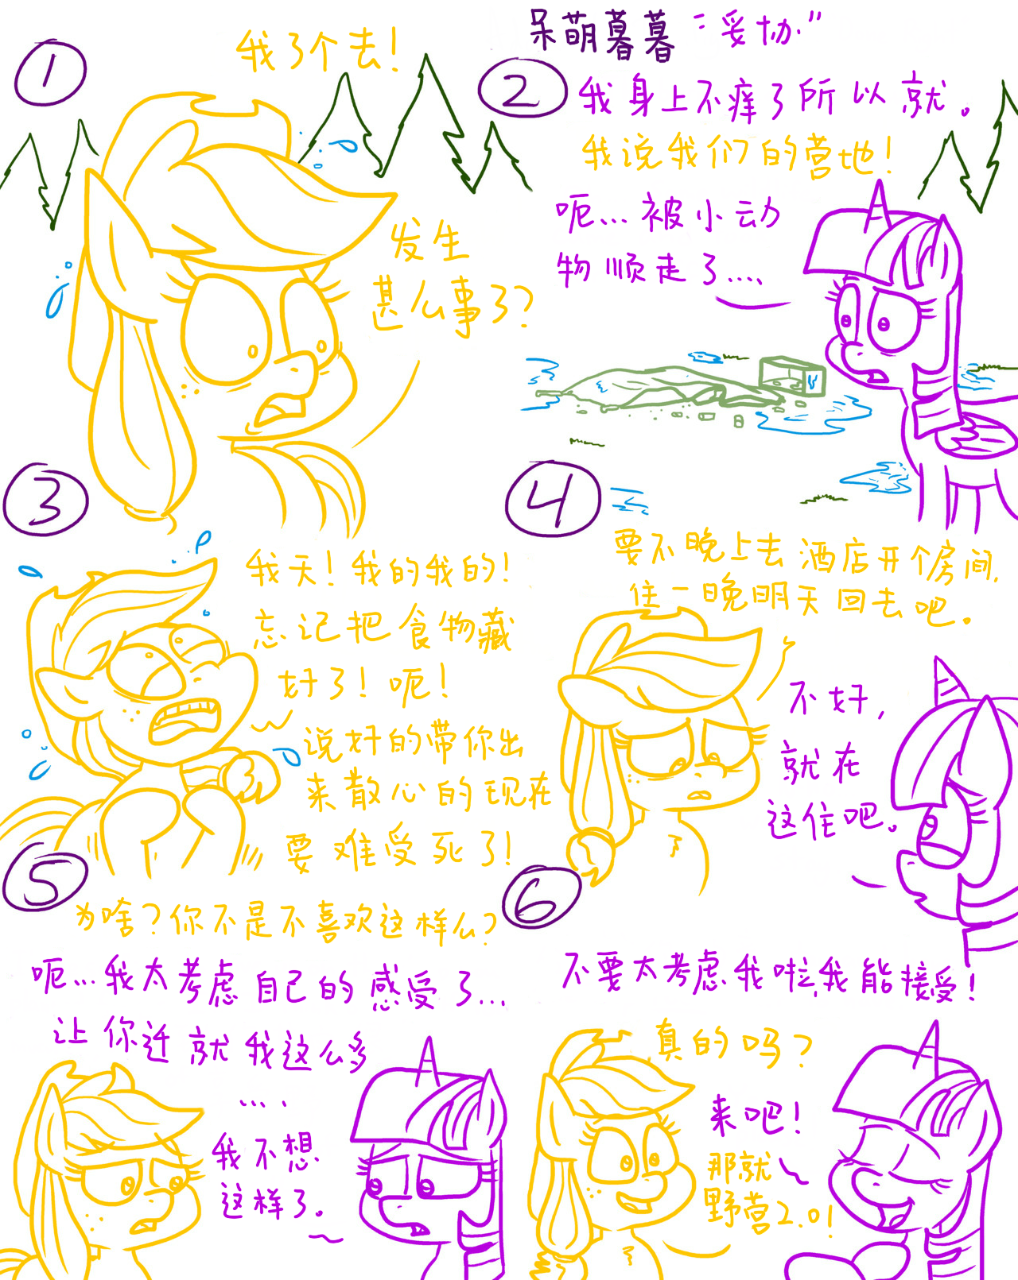 呆萌暮暮“妥协”
1
我了个去！
发生
甚么事了？
2
我身上不痒了所以就。
我说我们的营地！
呃…被小动
物顺走了….
3
我天！我的我的！
忘记把食物藏
好了！呃！
说好的带你出
来散心的现在
要难受死了！
4
要不晚上去酒店开个房间，
住一晚明天回去吧。
不好，
就在
这住吧。
5
为啥？你不是不喜欢这样么？
呃…我太考虑自己的感受了…
让你迁就我这么多
….
我不想
这样了。
6
不要太考虑我啦，我能接受！
真的吗？
来吧！
那就
野营2.0！